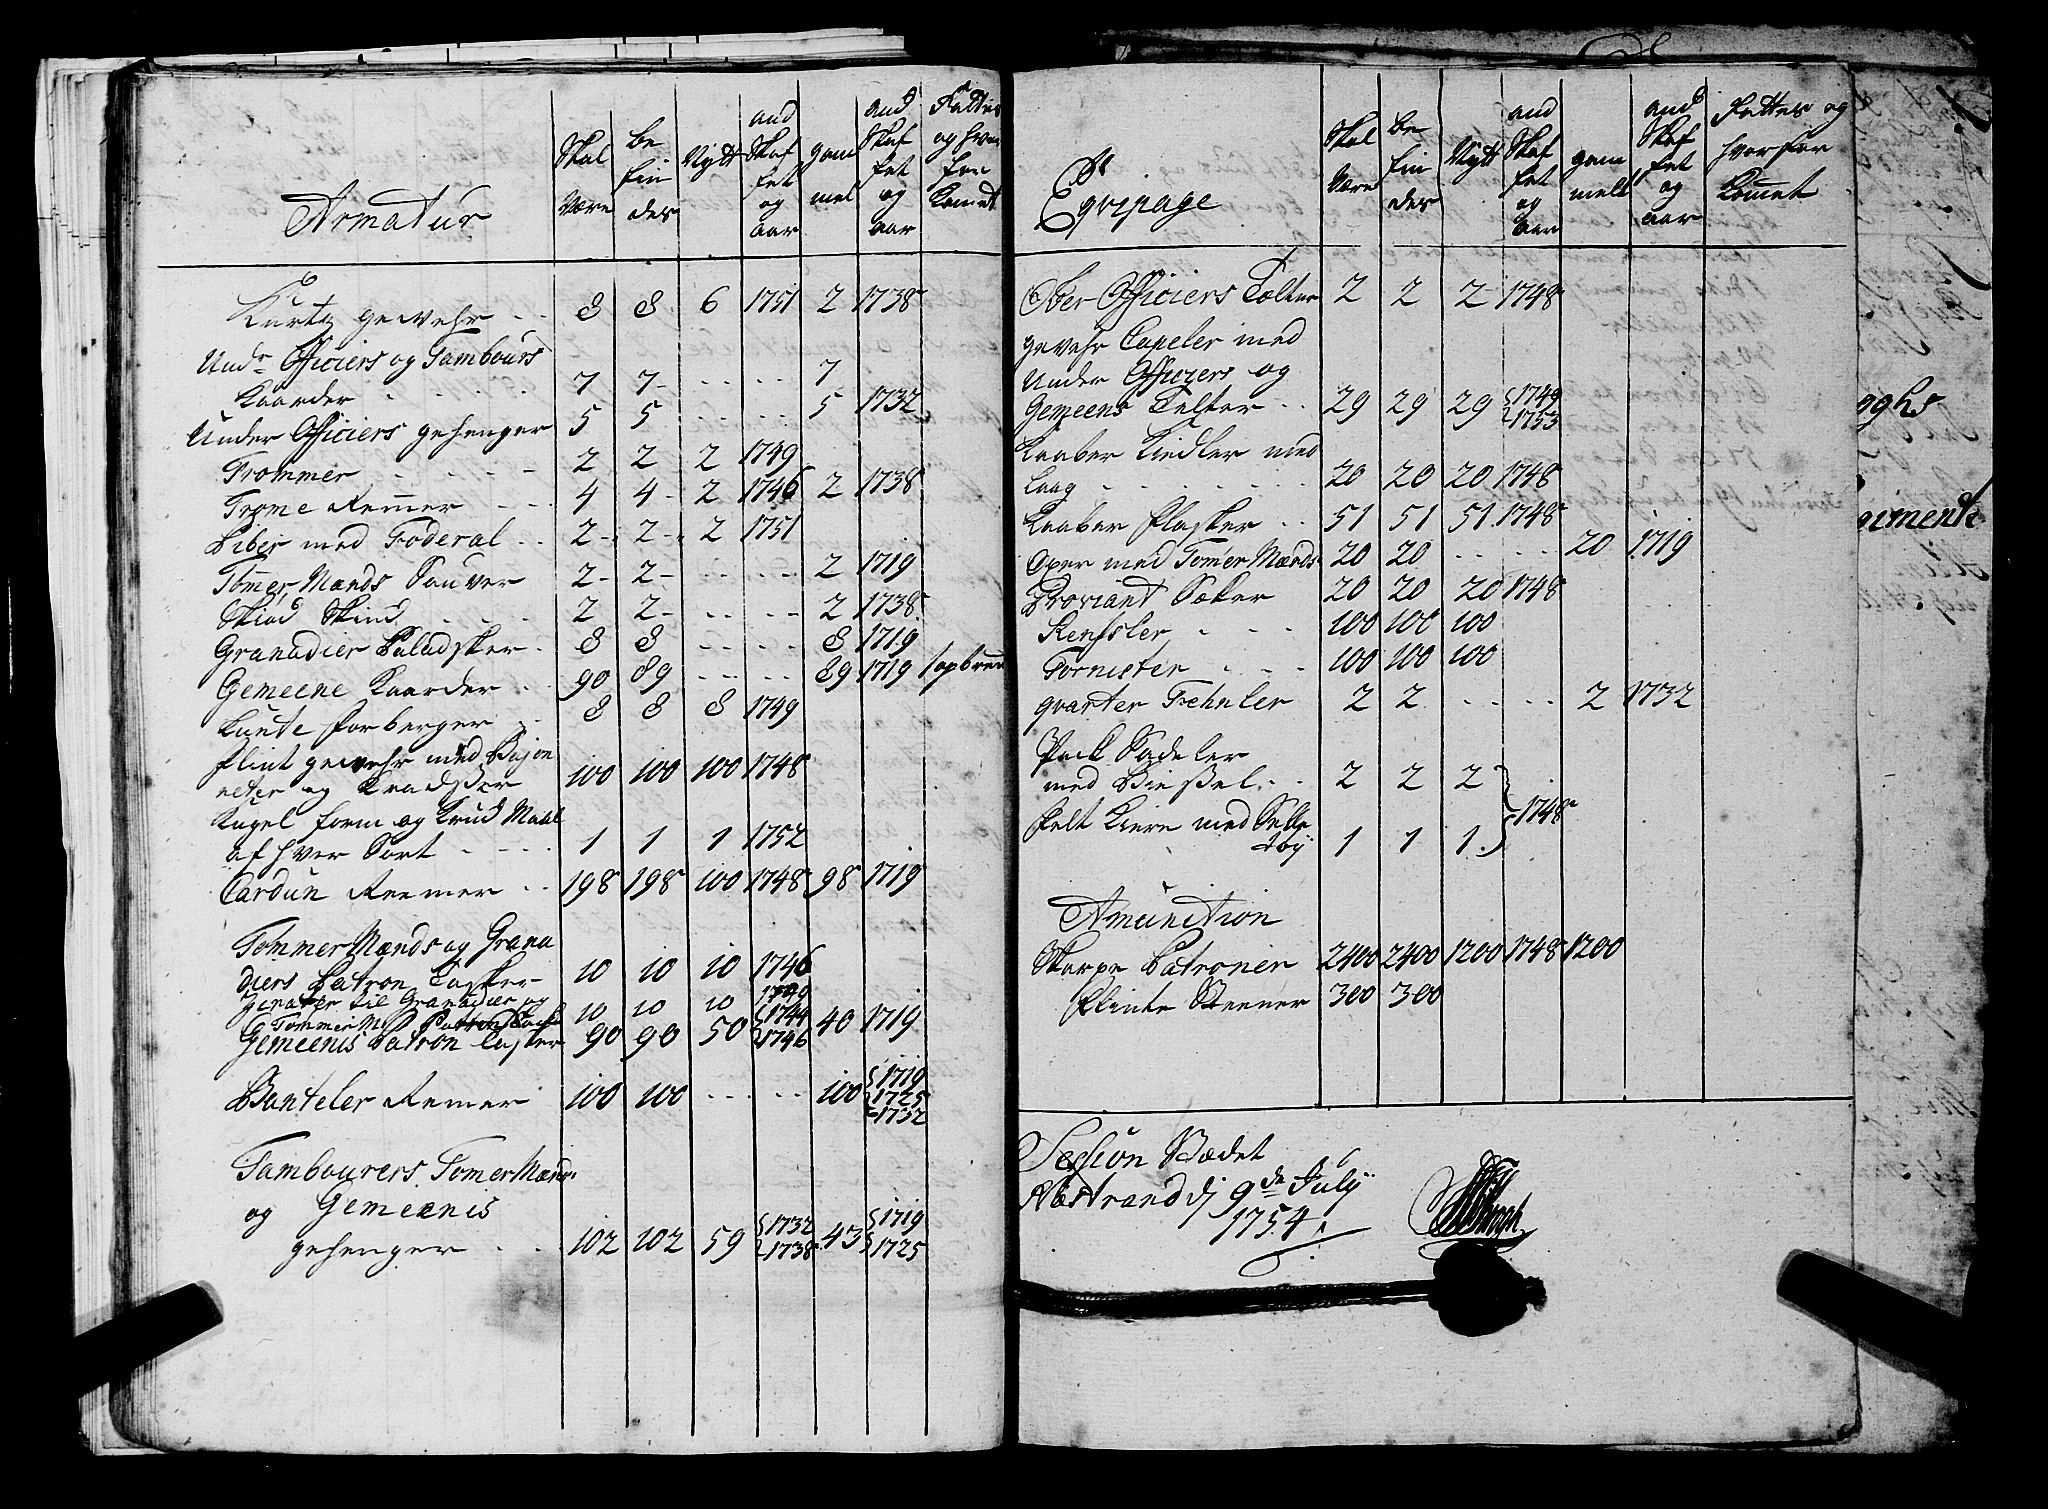 Armatur
Skal Være
be fin des
Nytt
and Skaf fet og aar
gam mel
and Skaf fet og aar
Fattes og hvor for Komet
Kurtz gewehr 8 8 6 1751 2 1738
Und Officiers og Tambours
Kaarder 7 7 7
Under Officiers gehenger 5 5 5 1732
Trommer 2 2 2 1749
Trome Remer 4 4 2 1746 2 1738
Biber med Foderal 2 2 2 1751
Tømer Mænds Sauver 2 2 2 1719
Skiød Skind 2 2 2 1738
Granadier Paladsker 8 8 8 1719
Gemeene Kaarder 90 89 89 1719
Lunte forberger 8 8 8 1749
Flint gewehr med Bajon
etter og 100 100 100 1748
Kugel form og Krud Maal
af hver Sort 1 1 1 1752
Cardun Reemer 198 198 100 1748 98 1719
Tømmer Mænds og Grana
diers Patron Tasker 10 10 10 1746
til Granadier og 1749
Tømmer M: Patron 10 10 10 1744
Gemeenis Patron Tasker 90 90 50 1746 40 1719
Banteler Remer 100 100 100 1719 1725 1732
Tambourers, Tømer Mænds
og Gemeenis
gehenger 102 102 59 1732 1738 43 1719 1725
Eqvipage
Skal Være
be fin des
Nytt
and Skaf fet og aar
gam melt
and Skaf fet og aar
Fattes og hvorfor Komet
Ober Officiers Tælter 2 2 2 1748
gevehr Capeler med
Under Officiers og
Gemeens Telter 29 29 29 1749 1753
Kaaber Kiedler med
Laag 20 20 20 1748
Kaaber Flasker 51 51 51 1748
Oxer med Tømer Mænds 20 20 20 1719
Proviant Sæker 20 20 20 1748
Rentzler 100 100 100
Tornister 100 100 100
qvarter Fehnler 2 2 2 1732
Pack Sadeler
med Bieszel 2 2 2
Felt Kiere med Selle
tøy 1 1 1 1748
Amunition
Skarpe Patroner 2400 2400 1200 1748 1200
Flinte Steener 300 300
Session Stædet
Næstrand dj 9de July
1754